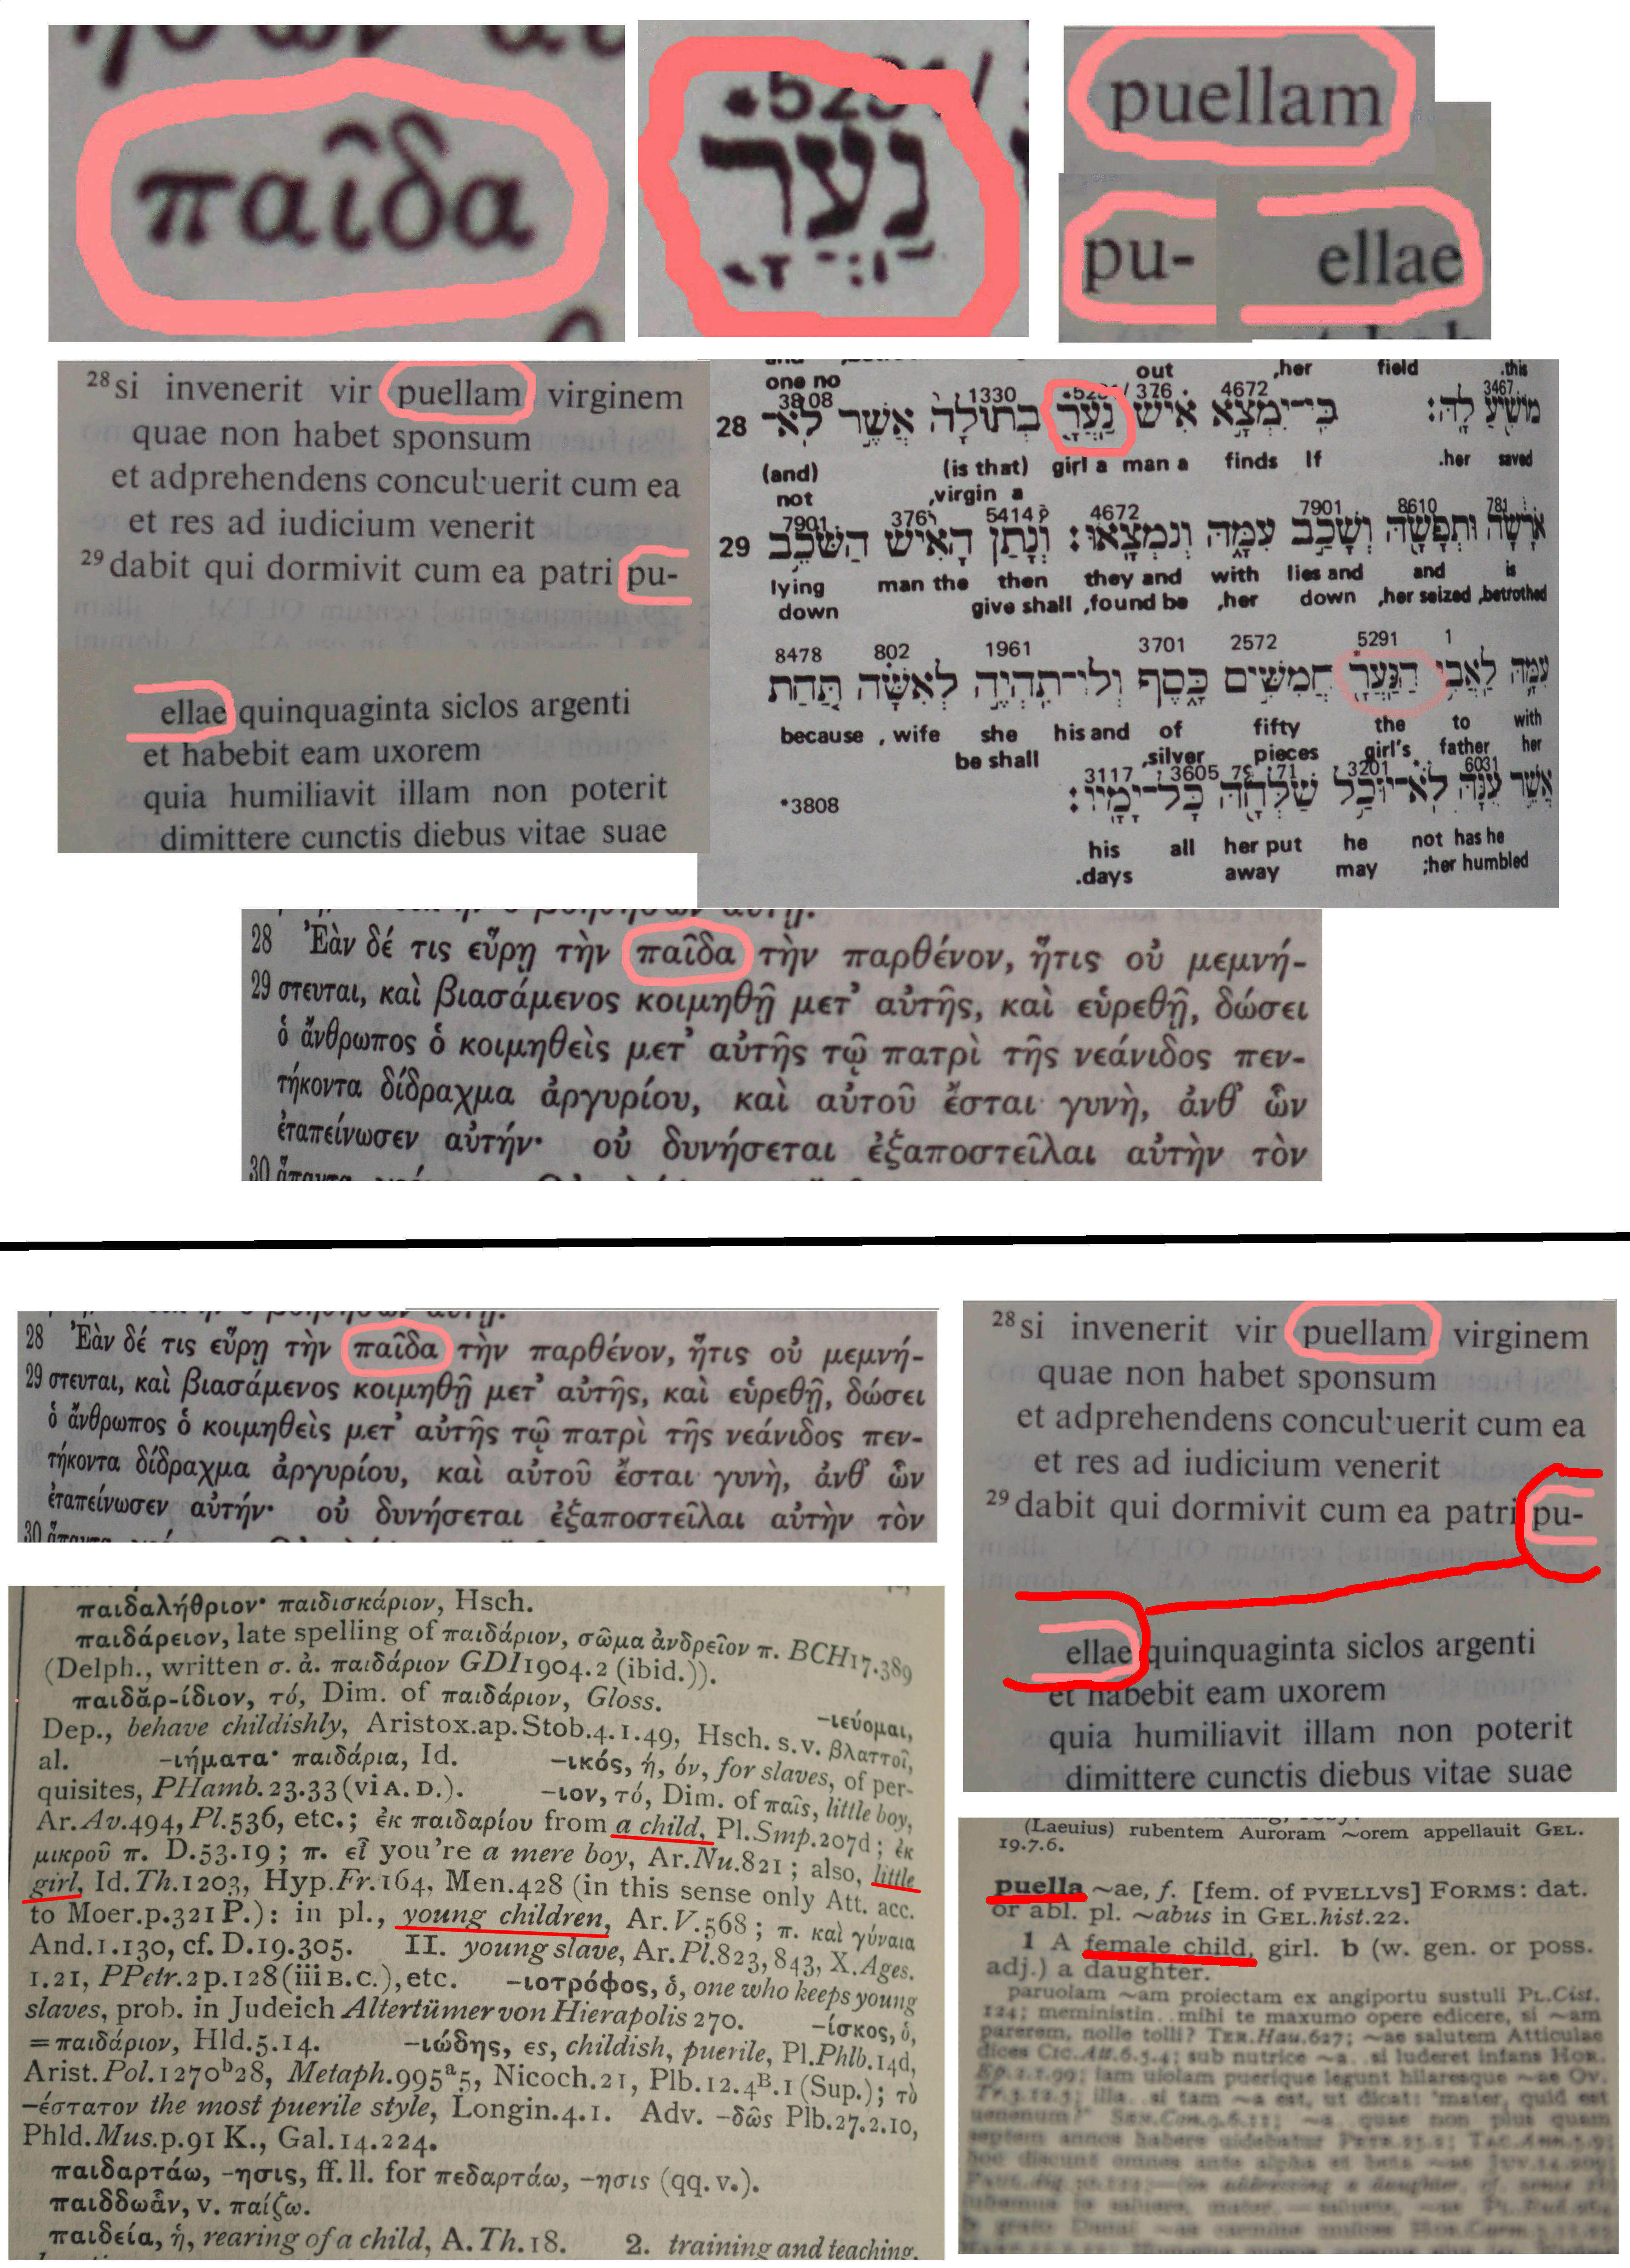 παῖδα
נַעֲרָ
puellam
pu-
ellae
28 si invenerit vir puellam virginem
quae non habet sponsum
et adprehendens concubuerit cum ea
et res ad iudicium venerit
29 dabit qui dormivit cum ea patri pu-
ellae quinquaginta siclos argenti
et habebit eam uxorem
quia humiliavit illam non poterit
dimittere cunctis diebus vitae suae
one no out ,her field .this
3808 1330 376 4672 3467
28 מוֹשִׁיעַ לָהּ׃ כִּי־יִמְצָא אִישׁ נַעֲרָ בְתוּלָה אֲשֶׁר לֹא־
(and) (is that) girl a man a finds If .her saved
not ,virgin a
7901 376 5414 4672 7901 8610 781
29 אֹרָשָׂה וּתְפָשָׂהּ וְשָׁכַב עִמָּהּ וְנִמְצָאוּ׃ וְנָתַן הָאִישׁ הַשֹּׁכֵב
lying man the then they and with lies and and is
down give shall ,found be ,her down ,her seized ,betrothed
8478 802 1961 3701 2572 5291 1
עִמָּהּ לַאֲבִי הַנַּעֲרָ חֲמִשִּׁים כָּסֶף וְלוֹ־תִהְיֶה לְאִשָּׁה תַּחַת
because , wife she his and of fifty the to with
be shall ,silver pieces girl's father her
3117 3605 71 3201 6031
*3808 אֲשֶׁר עִנָּהּ לֹא־יוּכַל שַׁלְּחָהּ כָּל־יָמָיו׃
his all her put he not has he
.days away may ;her humbled
28 Ἐὰν δέ τις εὕρῃ τὴν παῖδα τὴν παρθένον, ἥτις οὐ μεμνή-
29 στευται, καὶ βιασάμενος κοιμηθῇ μετ’ αὐτῆς, καὶ εὑρεθῇ, δώσει
ὁ ἄνθρωπος ὁ κοιμηθεὶς μετ’ αὐτῆς τῷ πατρὶ τῆς νεάνιδος πεν-
τήκοντα δίδραχμα ἀργυρίου, καὶ αὐτοῦ ἔσται γυνὴ, ἀνθ’ ὧν
ἐταπείνωσεν αὐτήν· οὐ δυνήσεται ἐξαποστεῖλαι αὐτὴν τὸν
30
28 Ἐὰν δέ τις εὕρῃ τὴν παῖδα τὴν παρθένον, ἥτις οὐ μεμνή-
29 στευται, καὶ βιασάμενος κοιμηθῇ μετ’ αὐτῆς, καὶ εὑρεθῇ, δώσει
ὁ ἄνθρωπος ὁ κοιμηθεὶς μετ’ αὐτῆς τῷ πατρὶ τῆς νεάνιδος πεν-
τήκοντα δίδραχμα ἀργυρίου, καὶ αὐτοῦ ἔσται γυνὴ, ἀνθ’ ὧν
ἐταπείνωσεν αὐτήν· οὐ δυνήσεται ἐξαποστεῖλαι αὐτὴν τὸν
30
28 si invenerit vir puellam virginem
quae non habet sponsum
et adprehendens concubuerit cum ea
et res ad iudicium venerit
29 dabit qui dormivit cum ea patri pu-
ellae quinquaginta siclos argenti
et habebit eam uxorem
quia humiliavit illam non poterit
dimittere cunctis diebus vitae suae
παιδαλήθριον· παιδισκάριον, Hsch.
παιδάρειον, late spelling of παιδάριον, σῶμα ἀνδρεῖον π. BCH17.389
(Delph., written σ. ἀ. παιδάριον GDI1904.2 (ibid.)).
παιδᾰρ-ίδιον, τό, Dim. of παιδάριον, Gloss. -ιεύομαι,
Dep., behave childishly, Aristox.ap.Stob.4.1.49, Hsch. s.v. βλαττοῖ,
al. -ιήματα· παιδάρια, Id. -ικός, ή, όν, for slaves, of per-
quisites, PHamb.23.33 (vi A.D.). -ιον, τό, Dim. of παῖς, little boy,
Ar.Av.494, Pl.536, etc.; ἐκ παιδαρίου from a child, Pl.Smp.207d; ἐκ
μικροῦ π. D.53.19; π. εἶ you're a mere boy, Ar.Nu.821; also, little
girl, Id.Th.1203, Hyp.Fr.164, Men.428 (in this sense only Att. acc.
to Moer.p.321 P.): in pl., young children, Ar.V.568; π. καὶ γύναια
And.1.130, cf. D.19.305. II. young slave, Ar.Pl.823, 843, X.Ages.
1.21, PPetr.2p.128 (iii B.C.), etc. -ιοτρόφος, ὁ, one who keeps young
slaves, prob. in Judeich Altertümer von Hierapolis 270. -ίσκος, ὁ,
= παιδάριον, Hld.5.14. -ιώδης, ες, childish, puerile, Pl.Phlb.14d,
Arist.Pol.1270ᵇ28, Metaph.995ᵃ5, Nicoch.21, Plb.12.4ᴮ.1 (Sup.); τὸ
-έστατον the most puerile style, Longin.4.1. Adv. -δῶς Plb.27.2.10,
Phld.Mus.p.91 K., Gal.14.224.
παιδαρτάω, -ησις, ff. ll. for πεδαρτάω, -ησις (qq. v.).
παιδδωἇν, v. παίζω.
παιδεία, ἡ, rearing of a child, A.Th.18. 2. training and teaching,
(Laeuius) rubentem Auroram ~orem appellauit GEL.
19.7.6.
puella ~ae, f. [fem. of PVELLVS] FORMS: dat.
or abl. pl. ~abus in GEL.hist.22.
1 A female child, girl. b (w. gen. or poss.
adj.) a daughter.
paruolam ~am proiectam ex angiportu sustuli PL.Cist.
124; meministin.. mihi te maxumo opere edicere, si ~am
parerem, nolle tolli? TER.Hau.627; ~ae salutem Atticulae
dices CIC.Att.6.5.4; sub nutrice ~a.. si luderet infans HOR.